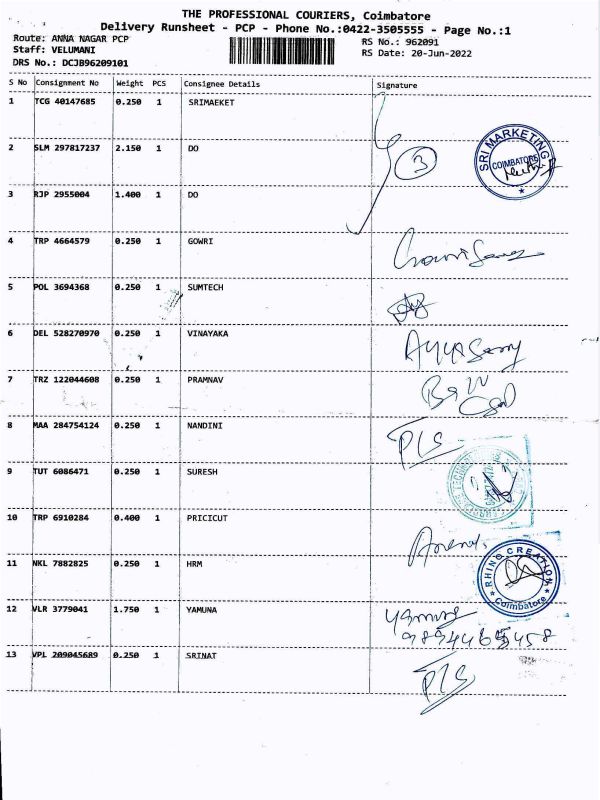 THE PROFESSIONAL COURIERS, Coimbatore
Delivery Runsheet - PCP - Phone No.:0422-3505555 - Page No.:1
Route: ANNA NAGAR PCP
RS No.: 962091
Staff: VELUMANI
RS Date: 20-Jun-2022
DRS No.: DCJB96209101
S No Consignment No Weight PCS Consignee Details Signature
1 TCG 40147685 0.250 1 SRIMAEKET
2 SLM 297817237 2.150 1 DO
3
SRI MARKETING
COIMBATORE
3 RJP 2955004 1.400 1 DO
4 TRP 4664579 0.250 1 GOWRI
5 POL 3694368 0.250 1 SUMTECH
6 DEL 528270970 0.250 1 VINAYAKA
7 TRZ 122044608 0.250 1 PRAMNAV
8 MAA 284754124 0.250 1 NANDINI
PLS
9 TUT 6086471 0.250 1 SURESH
10 TRP 6910284 0.400 1 PRICICUT
11 NKL 7882825 0.250 1 HRM
RHINO CREATION
Coimbatore
12 VLR 3779041 1.750 1 YAMUNA
13 VPL 209045689 0.250 1 SRINAT
PLS